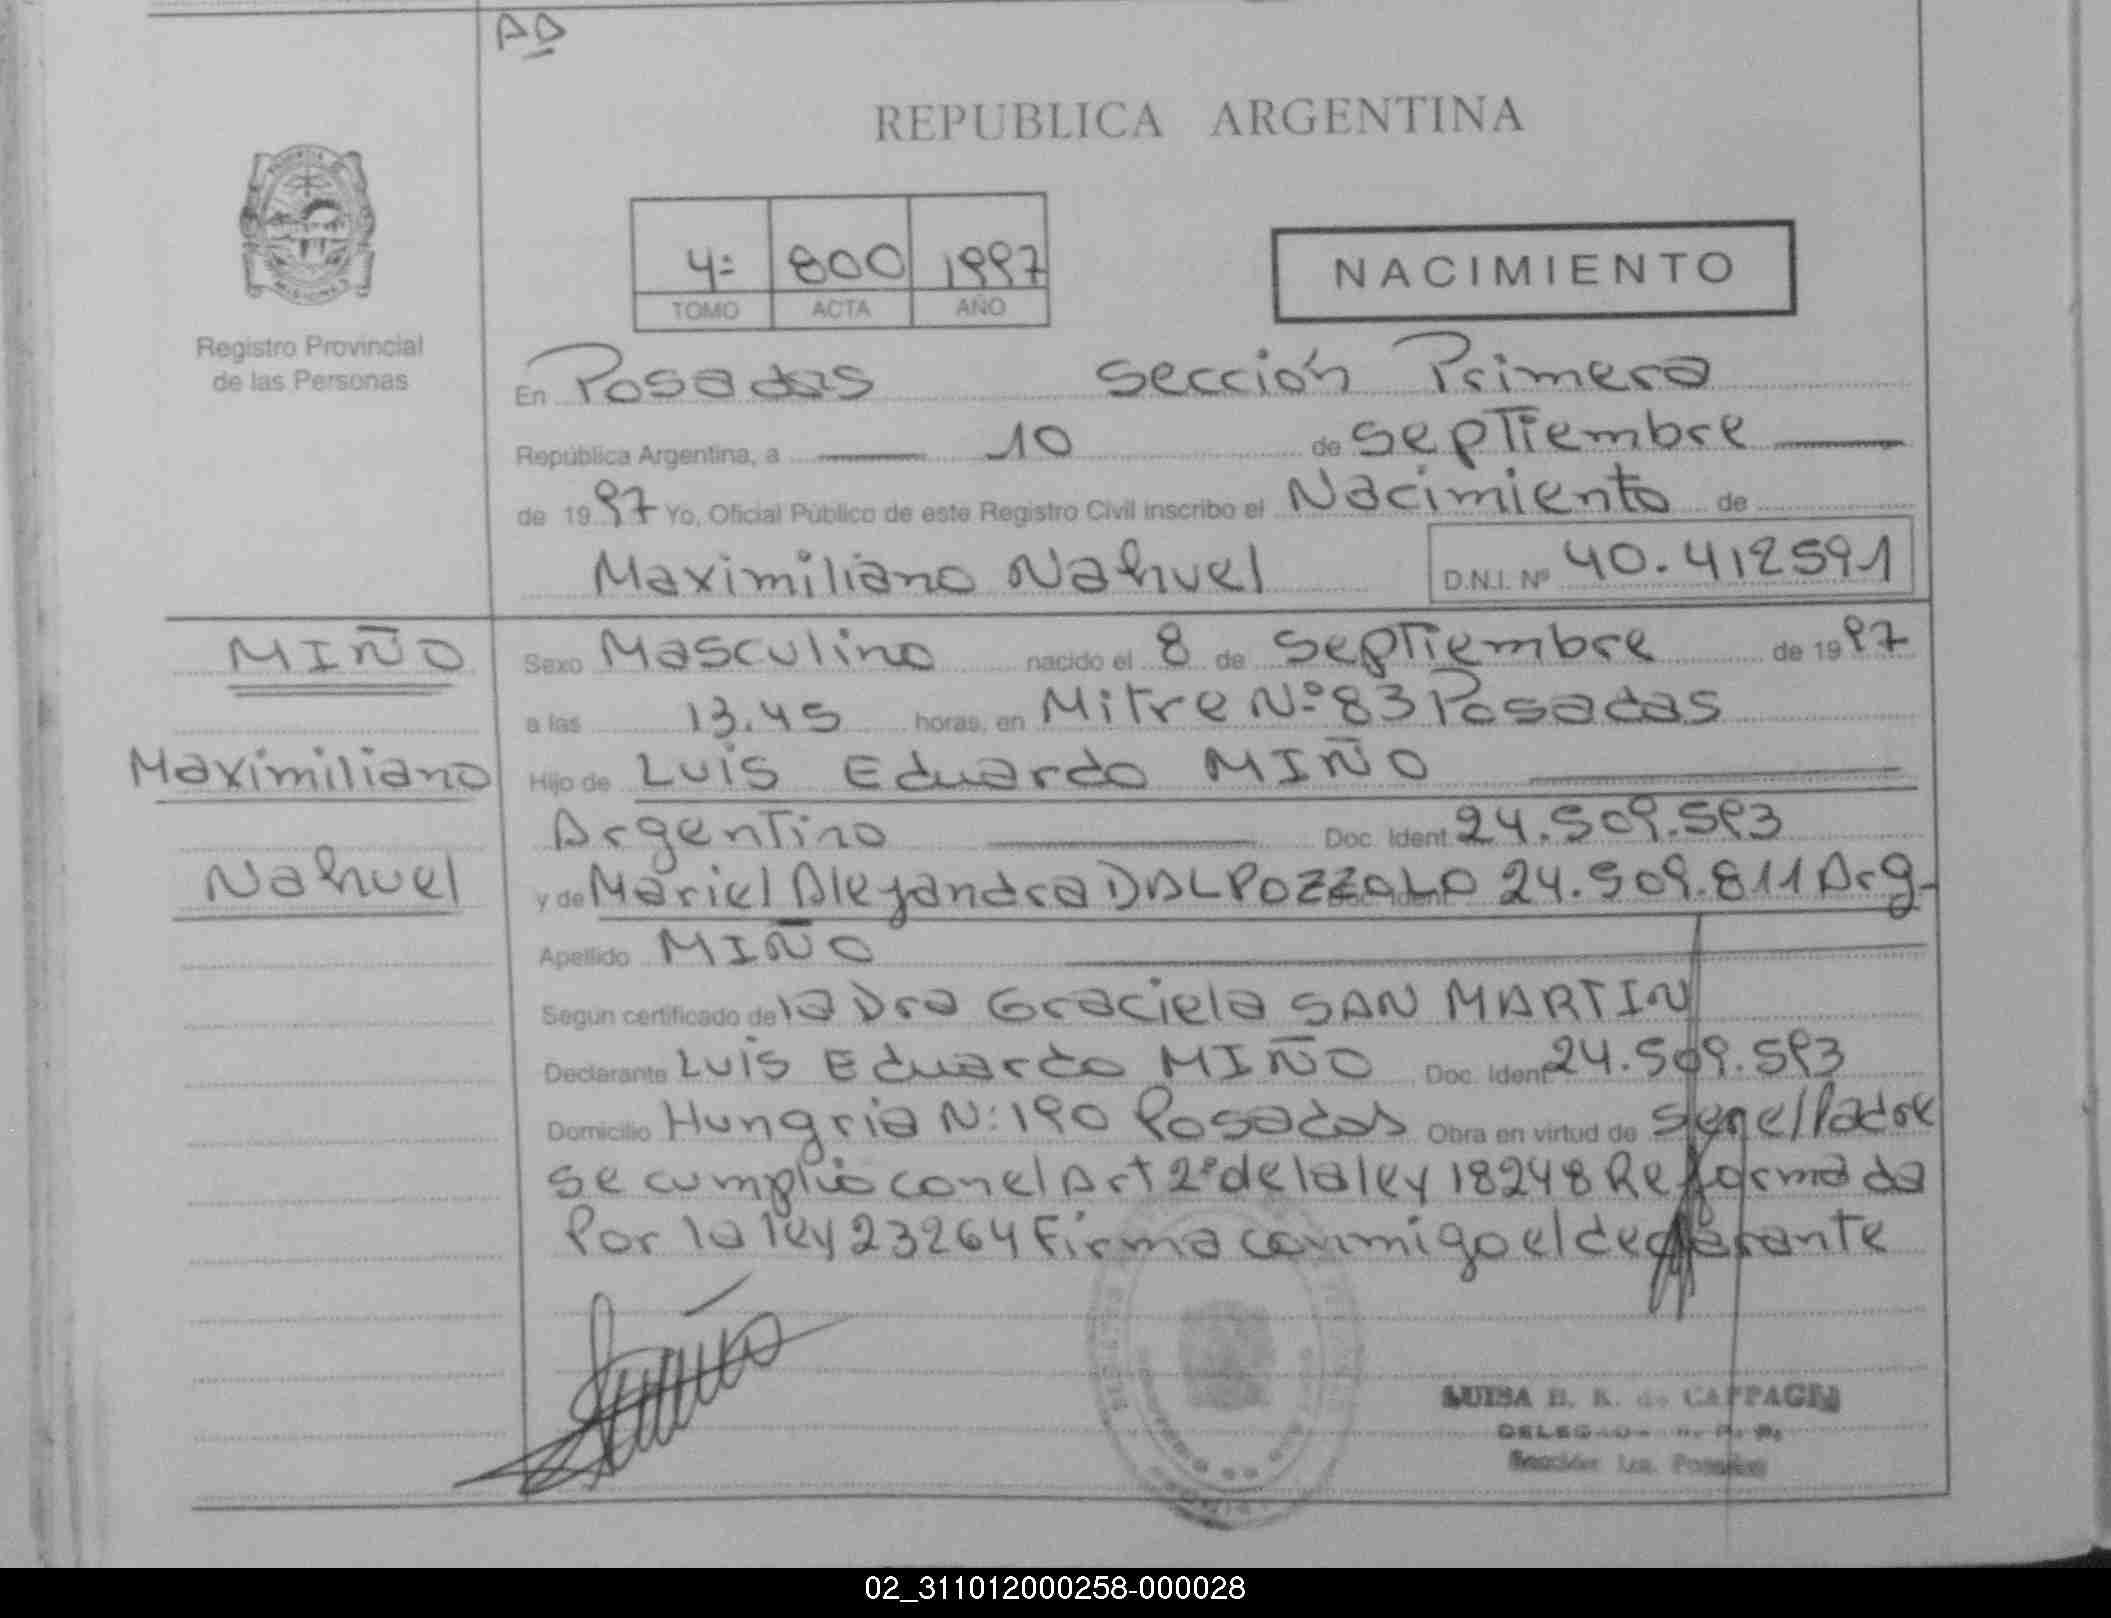 AD
REPUBLICA ARGENTINA
4º 800 1997
TOMO ACTA AÑO
NACIMIENTO
Registro Provincial
de las Personas
En Posadas Sección Primera
República Argentina, a 10 de Septiembre
de 1997 Yo, Oficial Público de este Registro Civil inscribo el Nacimiento de
Maximiliano Nahuel D.N.I. Nº 40.412591
MIÑO
Maximiliano
Nahuel
Sexo Masculino nacido el 8 de Septiembre de 1997
a las 13.45 horas, en Mitre Nº 83 Posadas
Hijo de Luis Eduardo MIÑO
Argentino Doc. Ident. 24.509.593
y de Mariel Alejandra DALPOZZOLO 24.509.811 Arg.
Apellido MIÑO
Según certificado de la Dra Graciela SAN MARTIN
Declarante Luis Eduardo MIÑO Doc. Ident 24.509.593
Domicilio Hungria N: 190 Posadas Obra en virtud de ser el Padre
Se cumplio con el Art 2º de la ley 18248 Reformada
Por la ley 23264 Firma conmigo el declarante
LUISA de
Sección 1ra. Posadas
02_311012000258-000028